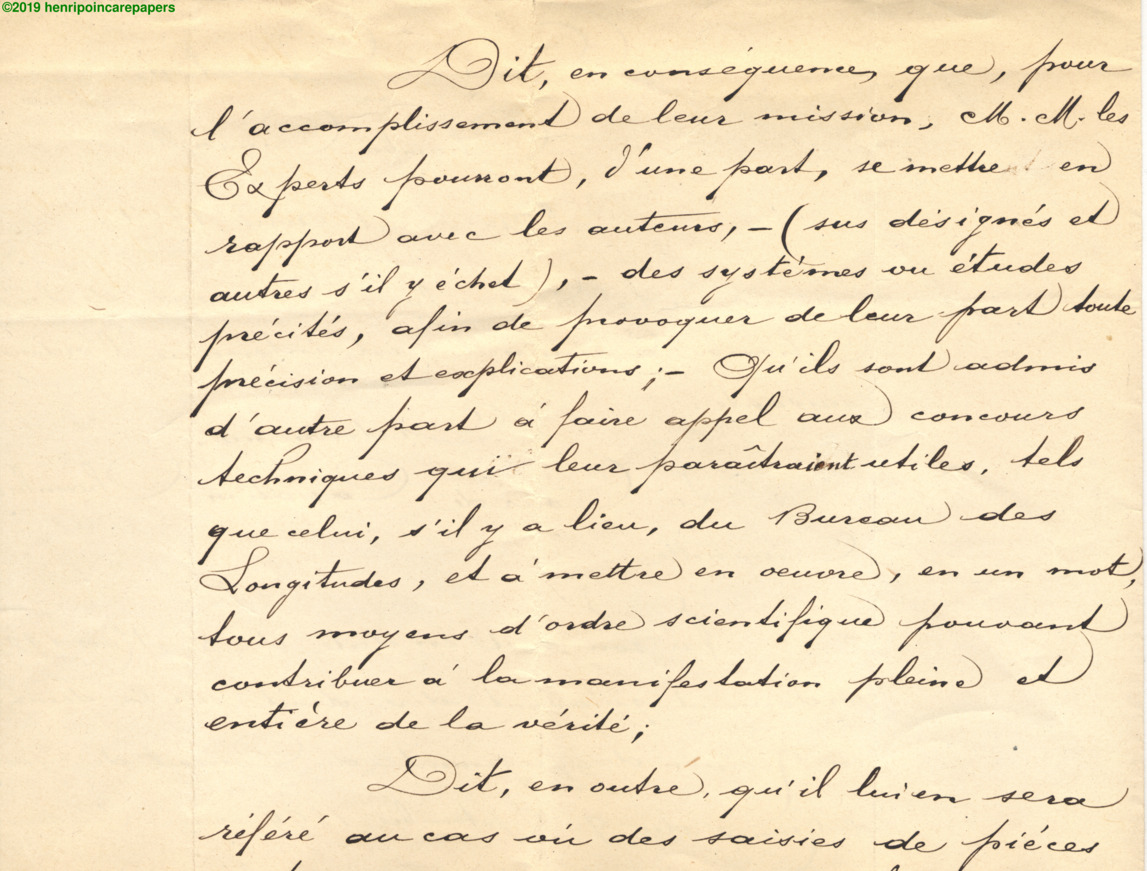 ©2019 henripoincarepapers
Dit, en conséquence, que, pour
l'accomplissement de leur mission, M.M. les
Experts pourront, d'une part, se mettre en
rapport avec les auteurs, – (sus désignés et
autres s'il y échet), – des systèmes ou études
précités, afin de provoquer de leur part toute
précision et explications; – Qu'ils sont admis
d'autre part à faire appel aux concours
techniques qui leur paraîtraient utiles, tels
que celui, s'il y a lieu, du Bureau des
Longitudes, et à mettre en oeuvre, en un mot,
tous moyens d'ordre scientifique pouvant
contribuer à la manifestation pleine et
entière de la vérité;
Dit, en outre, qu'il lui en sera
référé au cas où des saisies de pièces